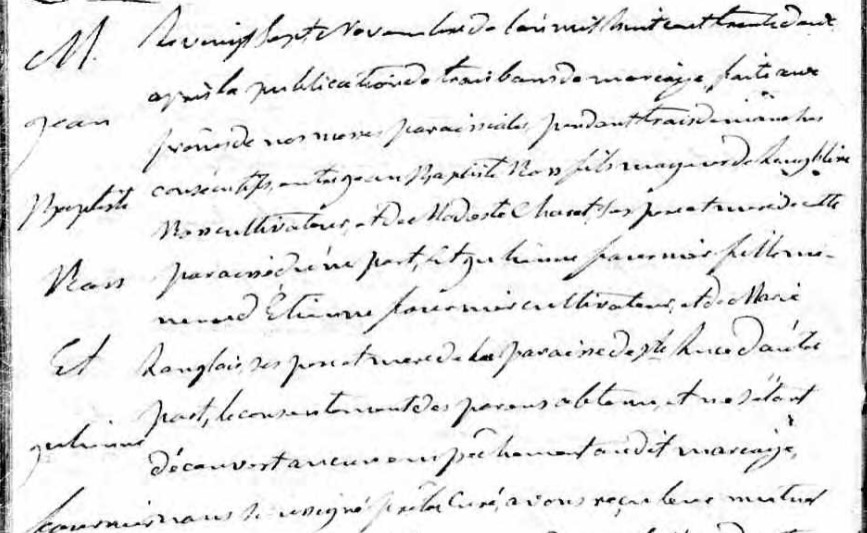 M.
Jean
Baptiste
Ross
Et
Julienne
fournier
Le vingt Sept Novembre de l'an mil huit cent trente deux
après la publication de trois bans de mariage, faite aux
prônes de nos messes paroissiales, pendant trois dimanches
consecutifs, entre Jean Baptiste Ross fils majeur de
Ross cultivateur, et de Modeste Charet, ses pere et mere de cette
paroisse d'une part, Et Julienne fournier fille mi-
neure d'Étienne fournier cultivateur, et de Marie
Langlois, ses pere et mere de la paroisse de Ste Luce d'autre
part, le consentement des parens obtenu, et ne s'étant
découvert aucun empêchement au dit mariage,
nous Soussigné prêtre Curé, avons reçu leur mutuel